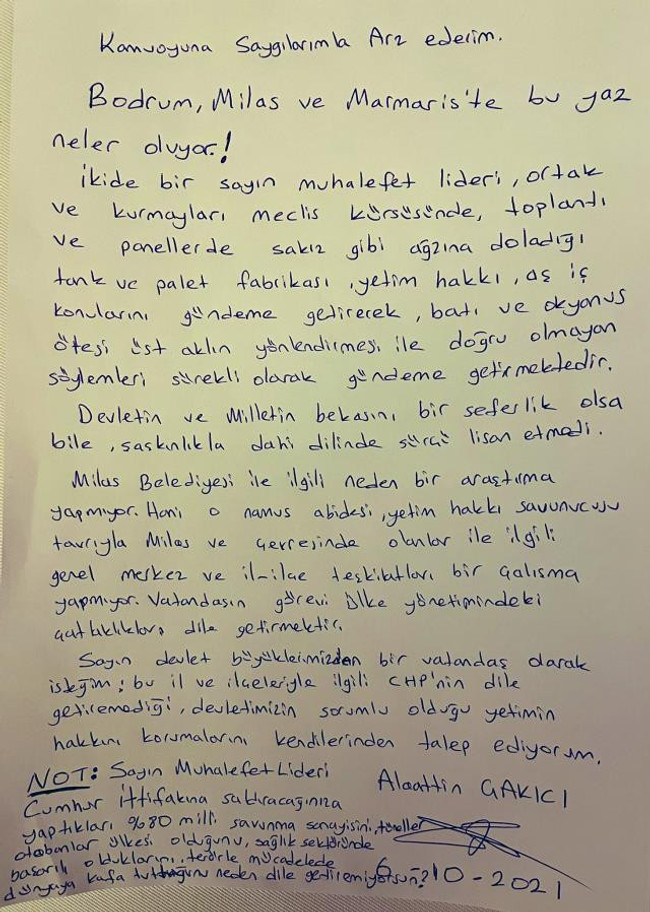 Kamuoyuna Saygılarımla Arz ederim.
Bodrum, Milas ve Marmaris'te bu yaz
neler oluyor.!
İkide bir sayın muhalefet lideri, ortak
ve kurmayları meclis kürsüsünde, toplantı
ve panellerde sakız gibi ağzına doladığı
tank ve palet fabrikası, yetim hakkı, aş iş
konularını gündeme getirerek, batı ve okyanus
ötesi üst aklın yönlendirmesi ile doğru olmayan
söylemleri sürekli olarak gündeme getirmektedir.
Devletin ve Milletin bekasını bir seferlik olsa
bile, şaşkınlıkla dahi dilinde sürçü lisan etmedi.
Milas Belediyesi ile ilgili neden bir araştırma
yapmıyor. Hani o namus abidesi, yetim hakkı savunucusu
tavrıyla Milas ve çevresinde olanlar ile ilgili
genel merkez ve il-ilçe teşkilatları bir çalışma
yapmıyor. Vatandaşın görevi ülke yönetimindeki
çatlaklıkları dile getirmektir.
Sayın devlet büyüklerimizden bir vatandaş olarak
isteğim; bu il ve ilçeleriyle ilgili CHP'nin dile
getiremediği, devletimizin sorumlu olduğu yetimin
hakkını korumalarını kendilerinden talep ediyorum.
Alaattin ÇAKICI
NOT: Sayın Muhalefet Lideri
Cumhur İttifakına saldıracağınıza
yaptıkları %80 milli savunma sanayisini, tüneller
otobanlar ülkesi olduğunu, sağlık sektöründe
başarılı olduklarını, terörle mücadelede
dünyaya kafa tuttuğunu neden dile getiremiyorsun?
6-10-2021